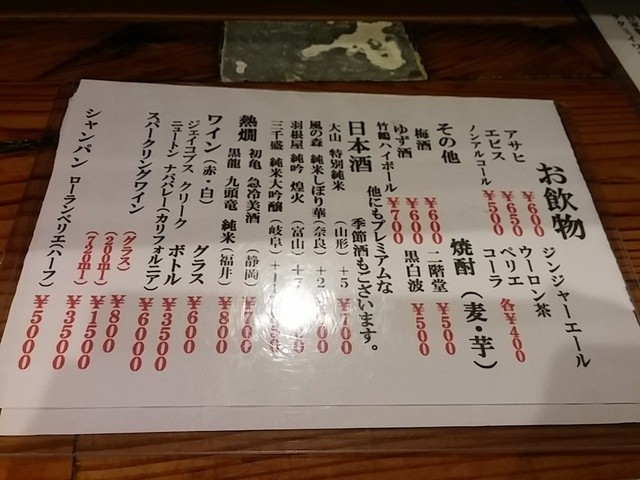 お飲物
アサヒ ¥600
エビス ¥650
ノンアルコール ¥500
ジンジャーエール
ウーロン茶
ペリエ
コーラ 各¥400
その他
梅酒 ¥600
ゆず酒 ¥600
竹鶴ハイボール ¥700
焼酎（麦・芋）
二階堂 ¥500
黒白波 ¥500
日本酒 他にもプレミアムな
季節酒もございます。
大山 特別純米 （山形）+5 ¥700
風の森 純米しぼり華（奈良）
羽根屋 純吟 煌火 （富山）
三千盛 純米大吟醸（岐阜）
熱燗 初亀 急冷美酒 （静岡）
黒龍 九頭竜 純米（福井） ¥800
ワイン（赤・白） グラス ¥600
ジェイコブス クリーク ボトル ¥3500
ニュートン ナパバレー（カリフォルニア） ¥6000
スパークリングワイン （グラス） ¥800
（200ml） ¥1500
（750ml） ¥3500
シャンパン ローランペリエ（ハーフ） ¥5000